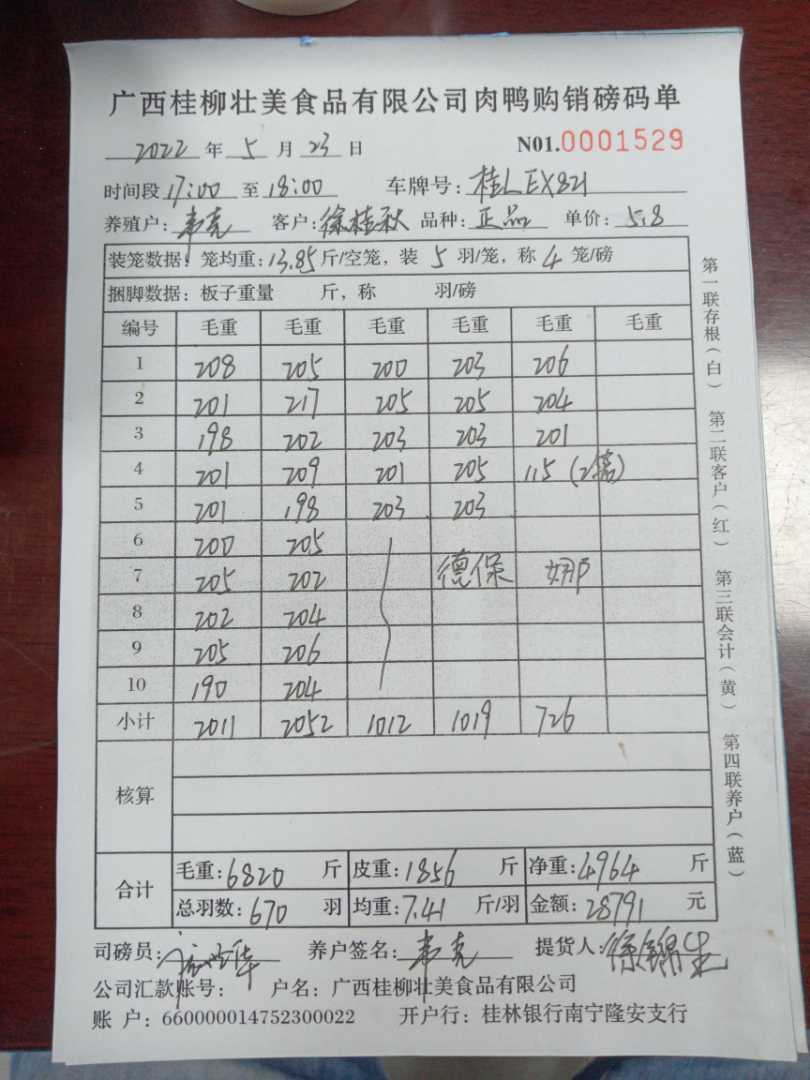 广西桂柳壮美食品有限公司肉鸭购销磅码单
2022 年 5 月 23 日 N01.0001529
时间段 17:00 至 18:00 车牌号: 桂LEX821
养殖户: 韦克 客户: 徐桂秋 品种: 正品 单价: 5.8
装笼数据: 笼均重: 13.85 斤/空笼, 装 5 羽/笼, 称 4 笼/磅
捆脚数据: 板子重量 斤, 称 羽/磅
编号 毛重 毛重 毛重 毛重 毛重 毛重
1 208 205 200 203 206
2 201 217 205 205 204
3 198 202 203 203 201
4 201 209 201 205 115 (2笼)
5 201 198 203 203
6 200 205
7 205 202 德保
8 202 204
9 205 206
10 190 204
小计 2011 2052 1012 1019 726
核算
合计 毛重: 6820 斤 皮重: 1856 斤 净重: 4964 斤
总羽数: 670 羽 均重: 7.41 斤/羽 金额: 28791 元
司磅员: 养户签名: 韦克 提货人:
公司汇款账号: 户名: 广西桂柳壮美食品有限公司
账 户: 660000014752300022 开户行: 桂林银行南宁隆安支行
第一联存根(白)
第二联客户(红)
第三联会计(黄)
第四联养户(蓝)